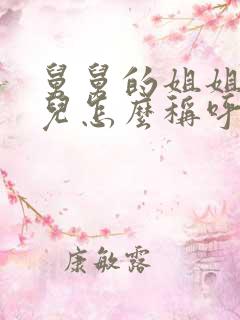 舅舅的姐姐
兒怎麼稱呼
康敏露